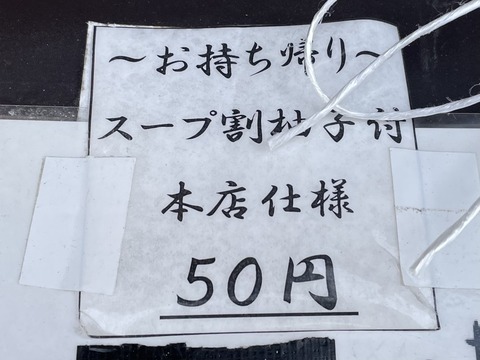 ～お持ち帰り～
スープ割柚子付
本店仕様
50円